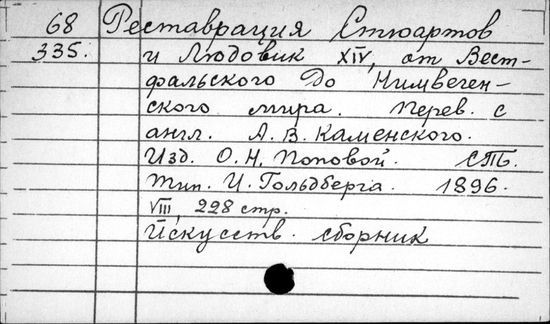 68 Реставрация Стюартов
335. и Людовик XIV, от Вест-
фальского до Нимвеген-
ского мира. Перев. с
англ. А. В. Каменского.
Изд. О. Н. Поповой. СПб.
Тип. И. Гольдберга. 1896.
VIII, 228 стр.
Искусств. сборник